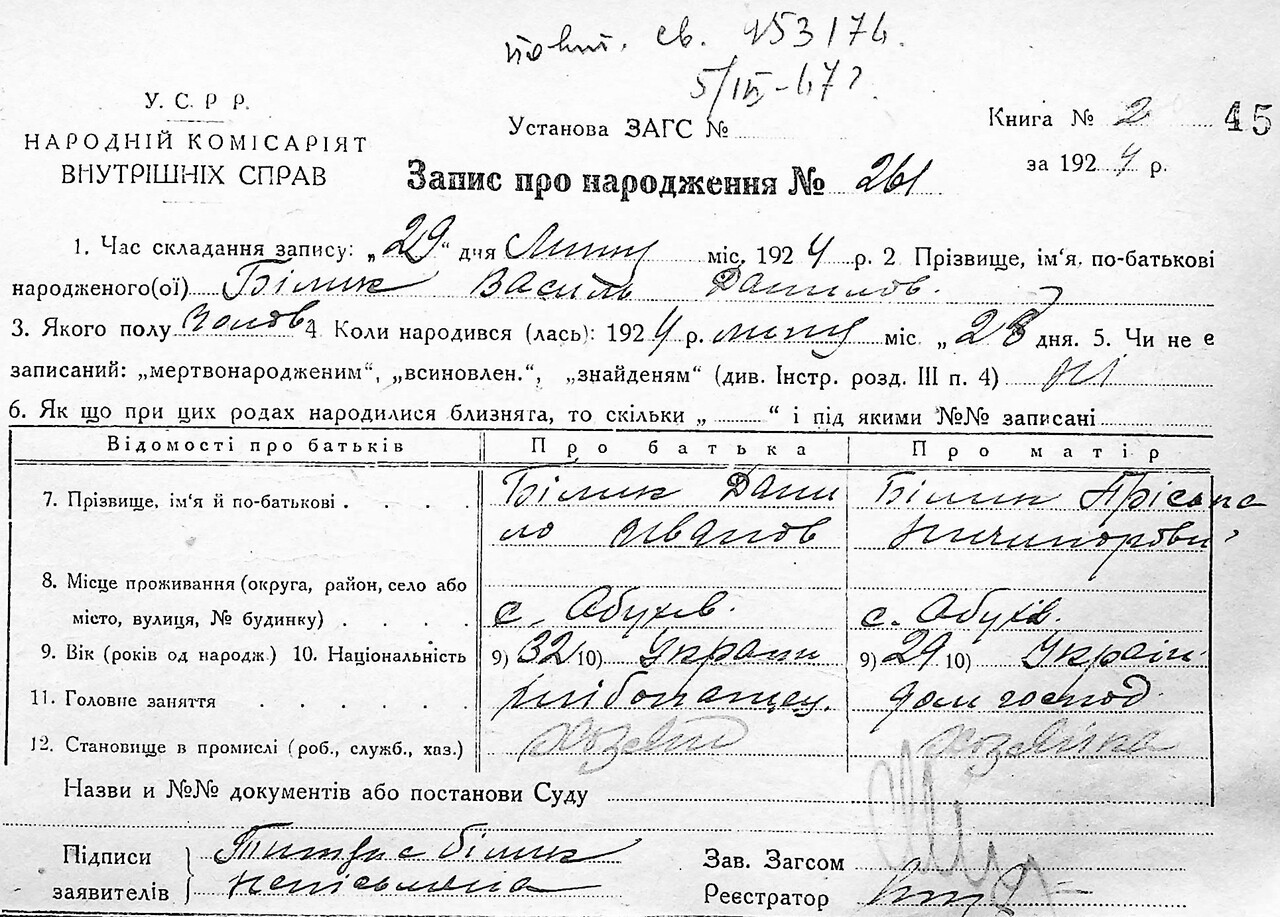 повт. св. 153174.
5/III-47?
У. С. Р Р.
НАРОДНІЙ КОМІСАРІЯТ
ВНУТРІШНІХ СПРАВ
Установа ЗАГС №
Книга № 2
45
за 1924 р.
Запис про народження № 261
1. Час складання запису: „29“ дня Липня міс. 1924 р. 2 Прізвище, ім'я, по-батькові
народженого(ої) Білик Василь Данилов.
3. Якого полу чолов 4. Коли народився (лась): 1924 р. липня міс „28 дня. 5. Чи не є
записаний: „мертвонародженим“, „всиновлен.“, „знайденям“ (див. Інстр. розд. III п. 4) ні
6. Як що при цих родах народилися близнята, то скільки „ “ і під якими №№ записані
Відомості про батьків Про батька Про матір
7. Прізвище, ім'я й по-батькові . . . . Білик Дани Білик Прісьна
ло Иванов Ничипоровн
8. Місце проживання (округа, район, село або
місто, вулиця, № будинку) . . . . с. Обухів. с. Обухів.
9. Вік (років од народж.) 10. Національність 9) 32 10) Україн 9) 29 10) Україін
11. Головне заняття . . . . . . хліборобец. дом господ
12. Становище в промислі (роб., служб., хаз.) хозяїн хозяйка
Назви и №№ документів або постанови Суду
Підписи
заявителів
Білик
неписьмена
Зав. Загсом
Реєстратор